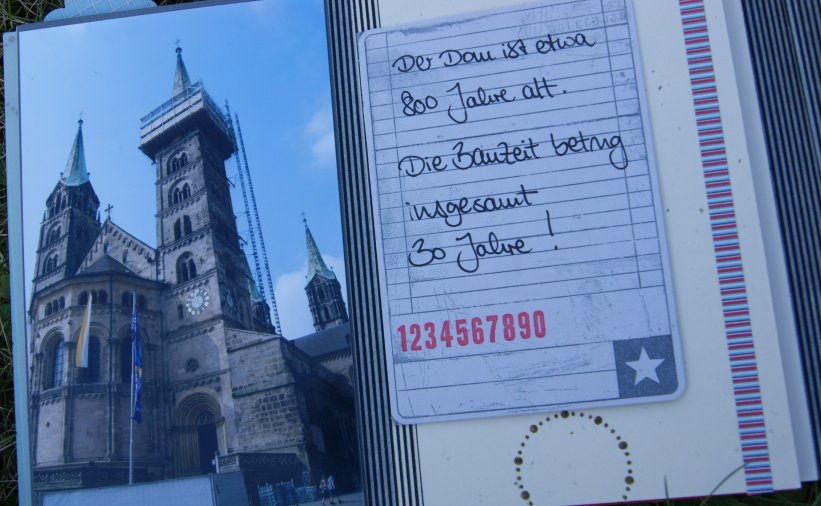 Der Dom ist etwa
800 Jahre alt.
Die Bauzeit betrug
insgesamt
30 Jahre!
1234567890